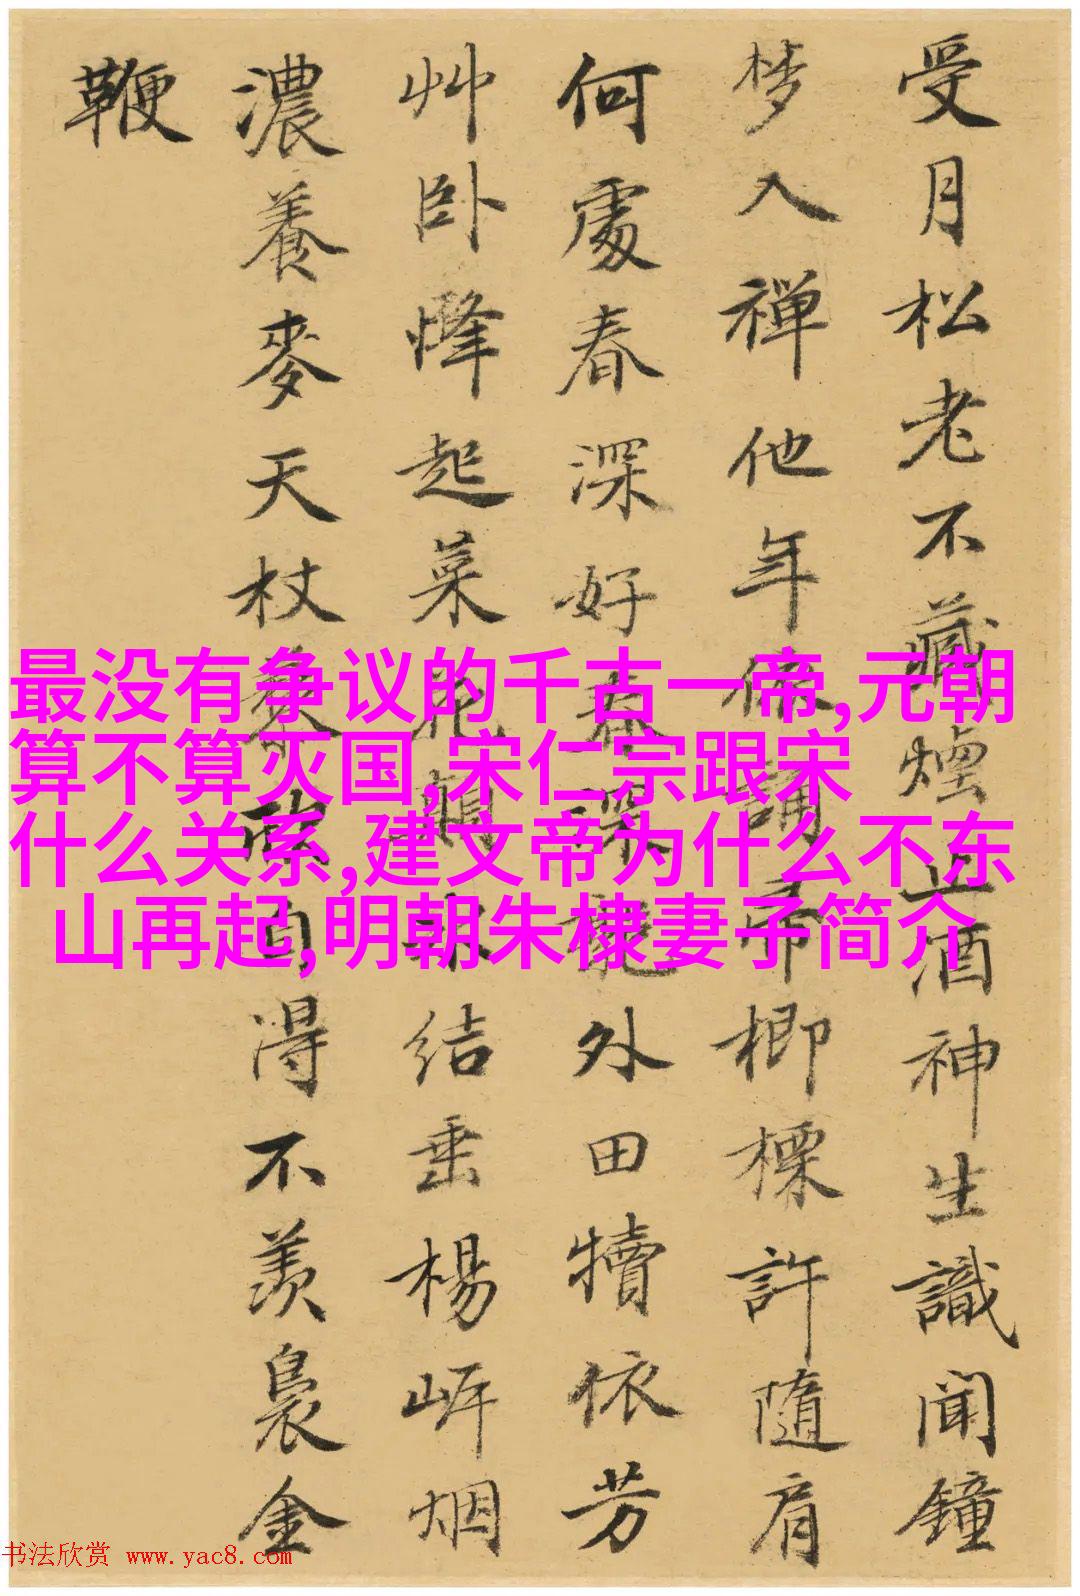 受月松老不藏煙止酒神生識聞鐘
梦入禅他年像誦帚楖檪許隨肩
何處春深好春深觀外田犢依芳
艸卧蜂起菜花顛水結垂楊岍烟
濃養麥天杖藜吟自得不羨裊金
鞭
最没有争议的千古一帝,元朝
算不算灭国,宋仁宗跟宋
什么关系,建文帝为什么不东
山再起,明朝朱棣妻子简介
书法欣赏 www.yac8.com